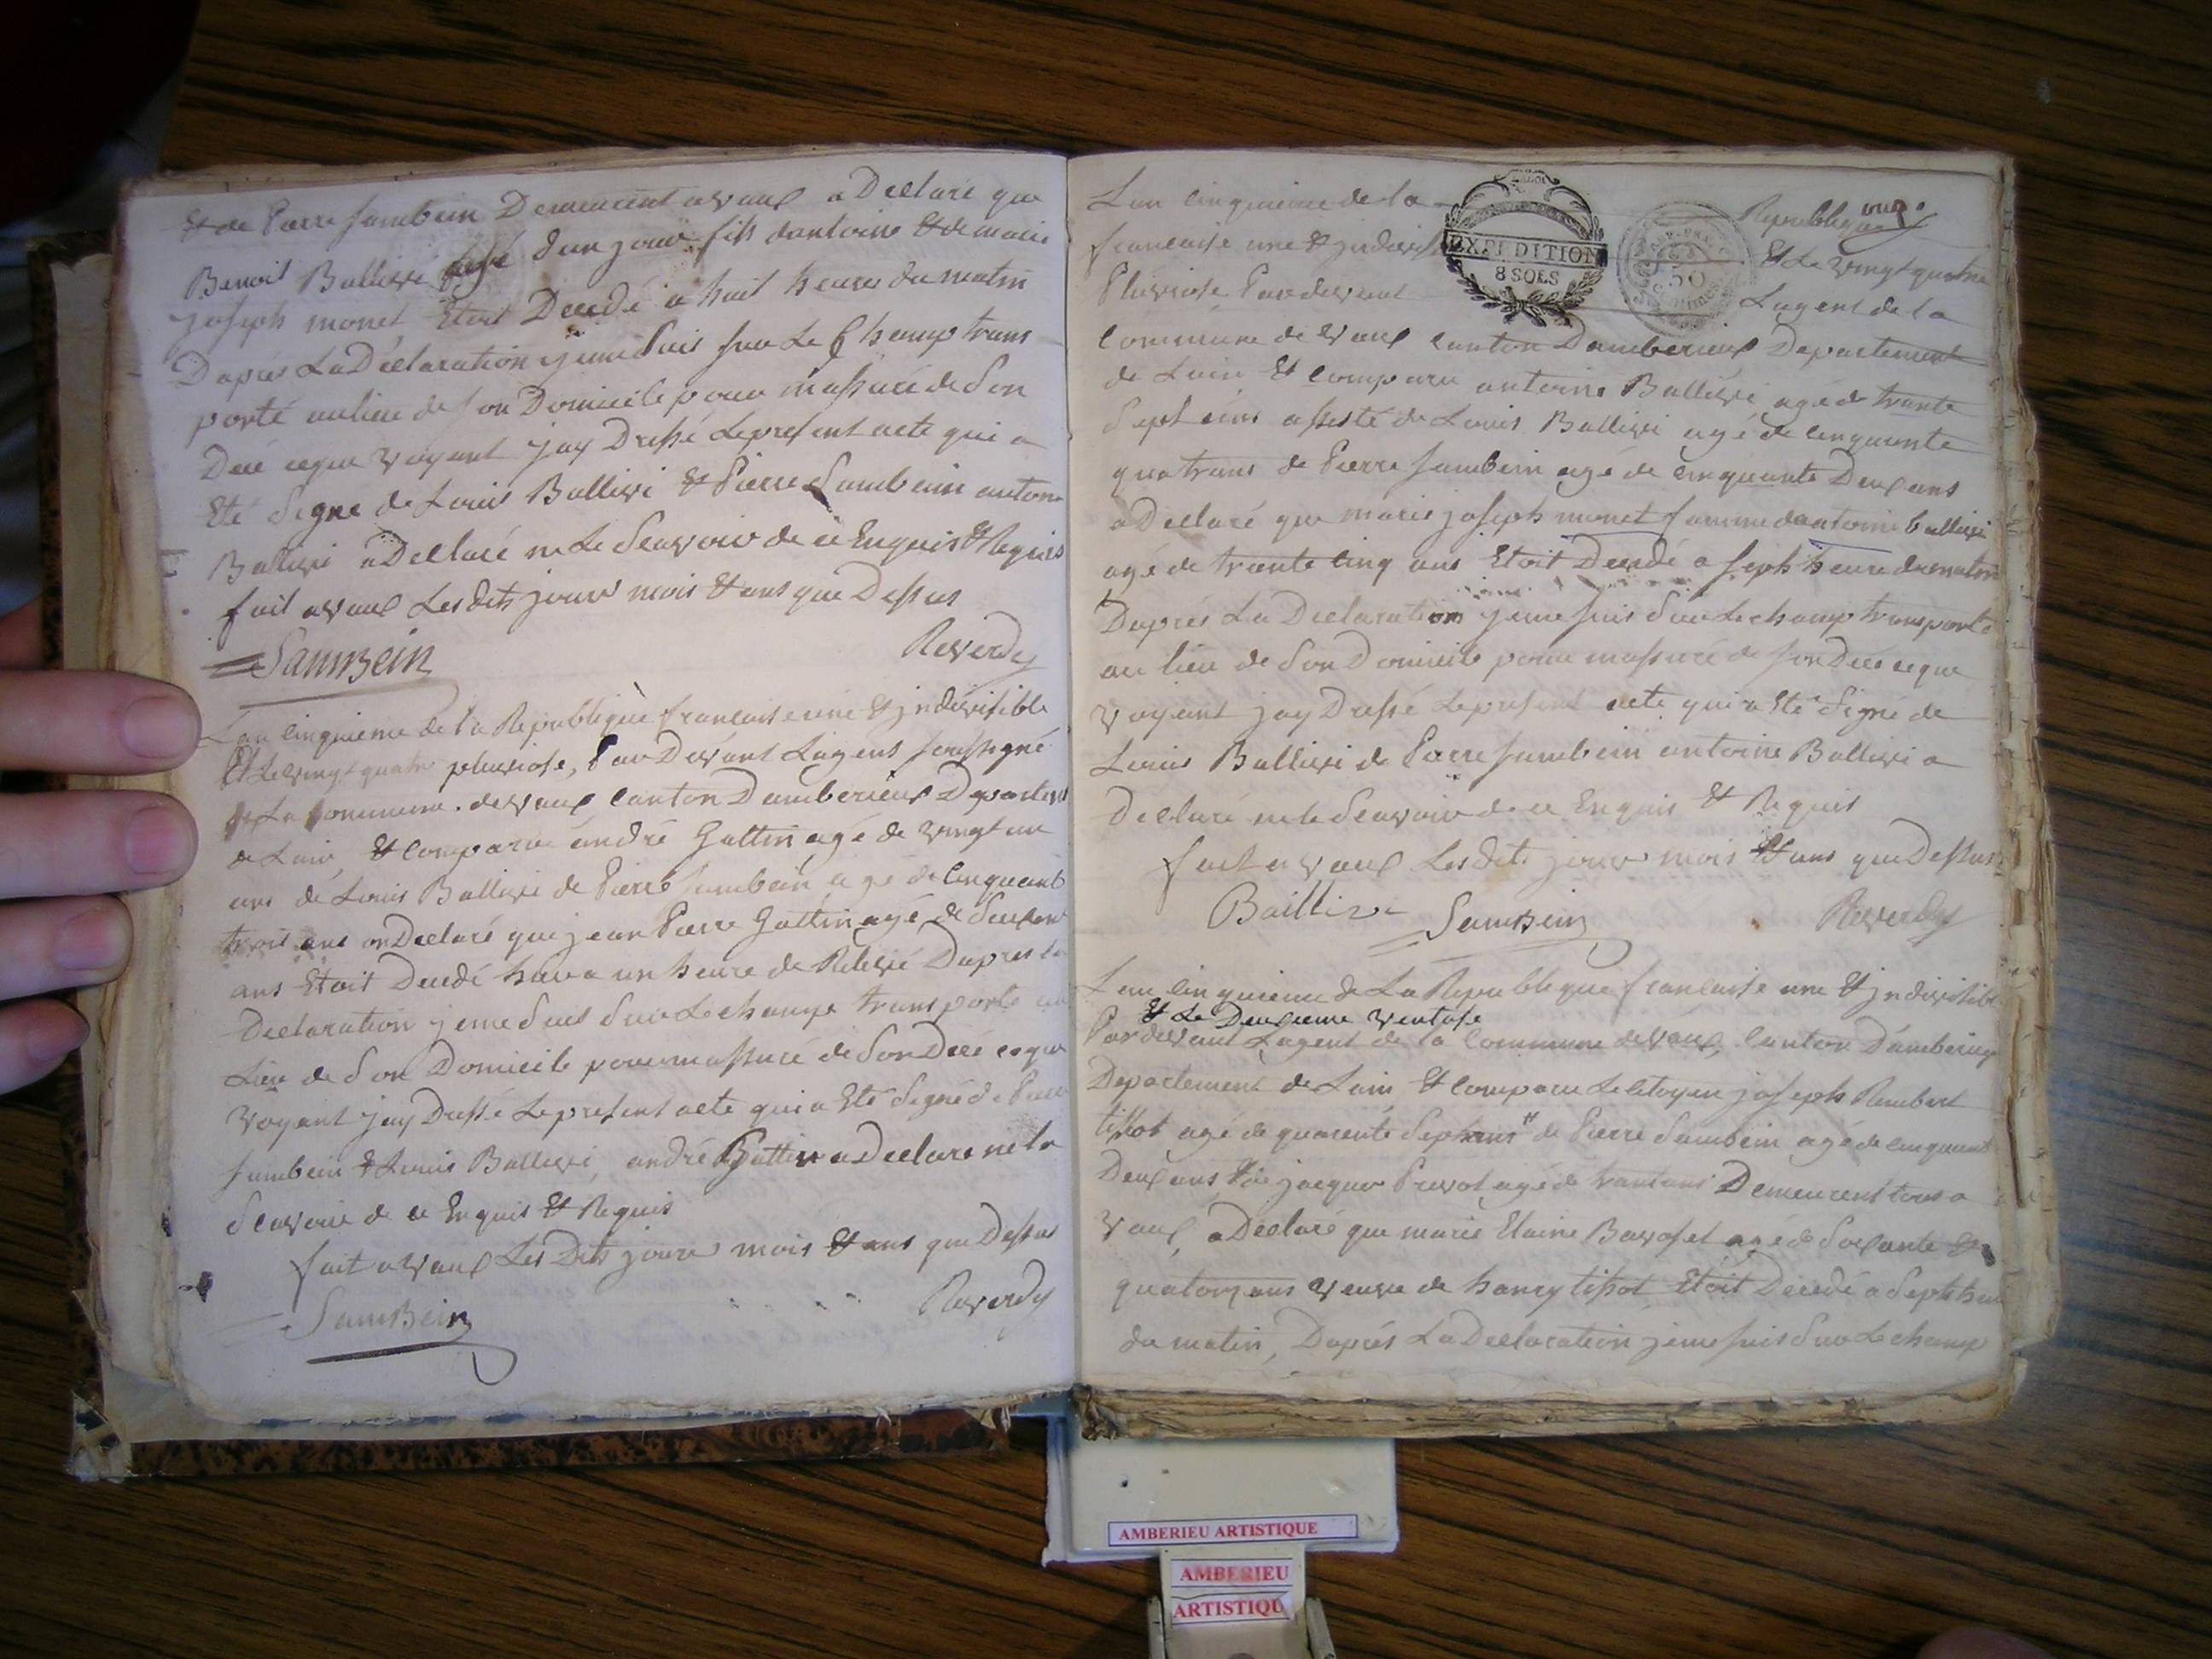 Et de Pierre Sambein Demeurent a vaux a Declaré que
Benoit Ballivi agé dun jour fils dantoine Et de marie
joseph monet Etoit Decedé a huit heures du matin
Dapres La Déclaration jemesuis sur Le Champ trans
porté aulieu de son Domicile pour massuré de son
Dec ceque voyant jay Dressé Lepresent acte qui a
Eté Signé de Louis Ballivi Et Pierre Sambein antoine
Ballivi a Déclaré ne Le Seavoir de ce Enquis Et Requis
fait a vaux Les dits jour mois Et ans que Dessus
Sambein
Reverdy
Lan Cinquieme de la Republique francaise une Et jndivisible
Et Levingt quatre pluviose, Par Devant Lagens soussigné
de La Commune de vaux Canton Damberieux Departement
de Lain Et Comparu andré Guttin agé de vingt un
ans de Louis Ballivi de Pierre Sambein agé de Cinquante
trois ans on Declaré que jean Pierre Guttin agé de Deux
ans Etoit Decedé hier a un heure de Relevé Dapres la
Declaration jemesuis sur Le champ transporté au
Lieu de Son Domicile pour massuré de Son Dece ceque
voyant jay Dressé Lepresent acte qui a Eté Signé de Pierre
Sambein Et Louis Ballivi, andré Guttin a Declare ne le
Scavoir de ce Enquis Et Requis
fait a vaux Les Dits jour mois Et ans que Dessus
Sambein
Reverdy
Lan Cinquieme de la Republique
francaise une Et jndivisi Et Le vingt quatre
Pluviose Pardevant Lagent de la
EXPEDITION
8 SOLS
50
Commune de vaux Canton Damberieux Departement
de Lain Et Comparu antoine Ballivi agé de trante
Sept ans assisté de Louis Ballivi agé de Cinquente
quatrans de Pierre Sambein agé de Cinquante Deux ans
a Declaré que marie joseph monet famme dantoine ballivi
agé de trante Cinq ans Etoit Decedé a Seph heure du matin
Dapres La Declaration jeme suis Sur Le champ transporté
au lieu de Son Domicile pour massuré de Son Dece ceque
voyant jay Dressé Lepresent acte qui a Eté Signé de
Louis Ballivi de Pierre Sambein antoine Ballivi a
Declaré ne le Seavoir de ce Enquis Et Requis
fait a vaux Les dits jour mois Et ans que Dessus
Baillivi Sambein Reverdy
Lan Cinquieme de La Republique francaise une Et jndivisible
Et Le Deuxieme ventose
Pardevant Lagent de la Commune de vaux, Canton Damberieux
Departement de Lain Et Comparu Le Citoyen joseph Rambert
tissot agé de quarente Sept ans de Pierre Sambein agé de Cinquante
Deux ans Et de jacques Prevot agé de trantans Demeurent tous a
vaux, a Déclaré que marie Elaine agé de Soixante Et
quatorz ans veuve de hanry tissot Etoit Decedé a Septh heure
du matin, Daprés La Declaration jeme suis Sur Le champ
AMBERIEU ARTISTIQUE
AMBERIEU
ARTISTIQU